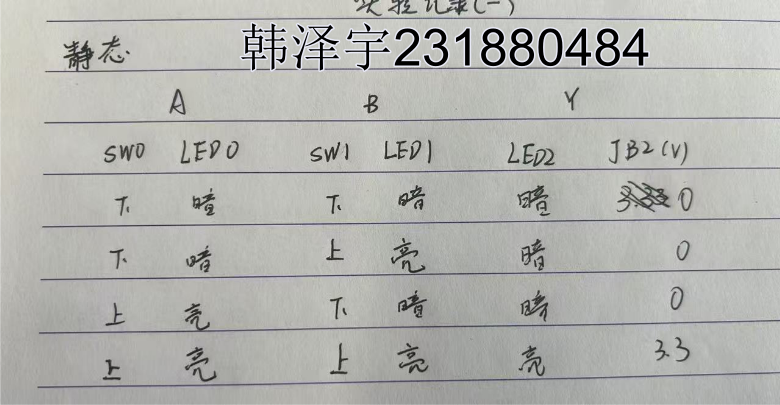 实验记录(一)
静态 韩泽宇231880484
A B Y
SW0 LED0 SW1 LED1 LED2 JB2(V)
下 暗 下 暗 暗 0
下 暗 上 亮 暗 0
上 亮 下 暗 暗 0
上 亮 上 亮 亮 3.3